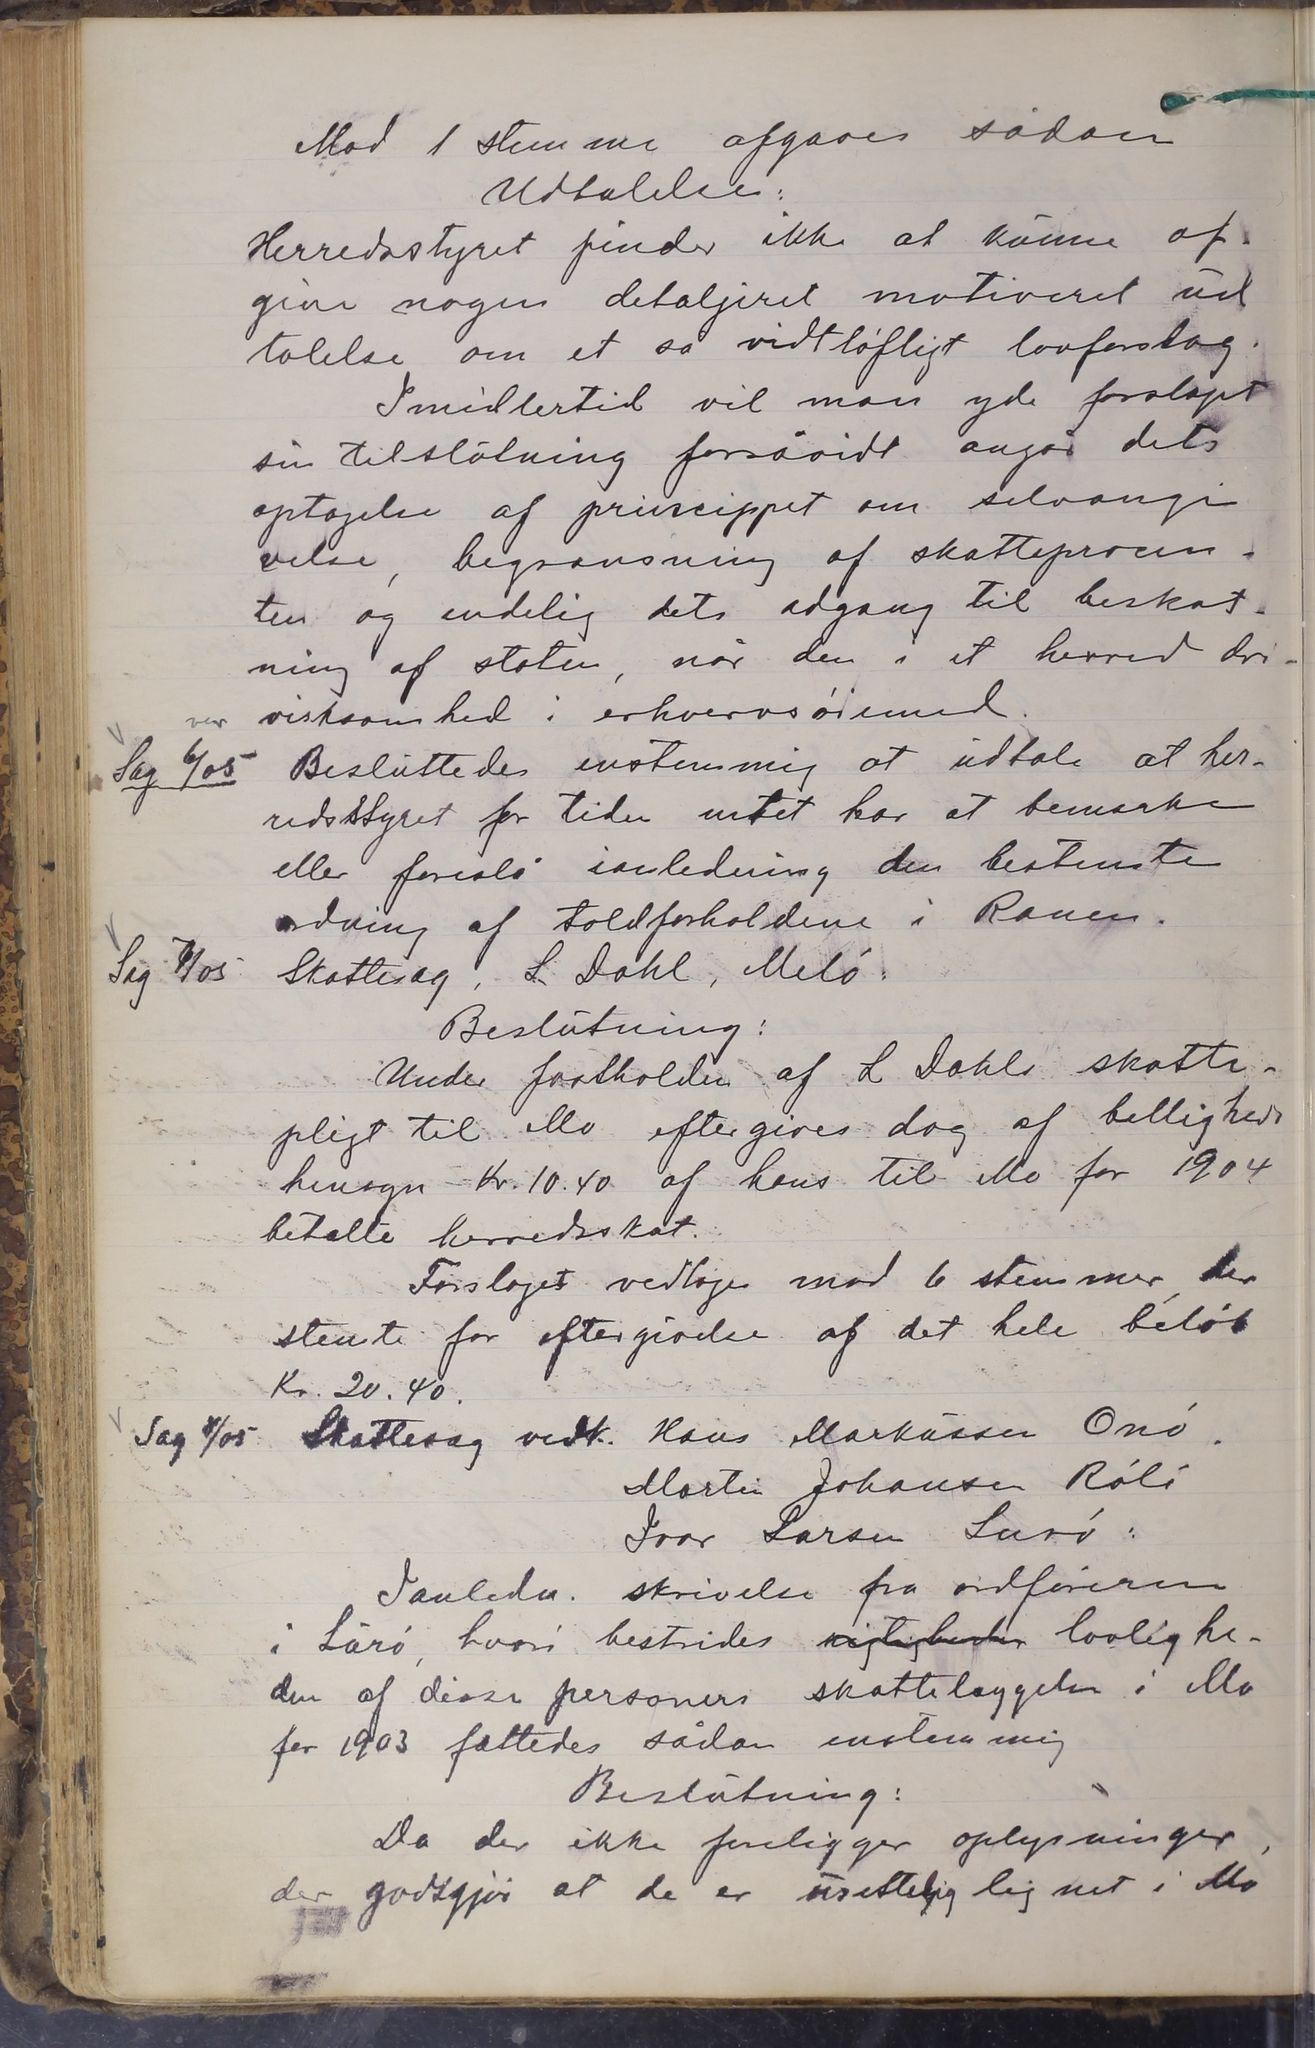 Mod 1 stemme afgaves sådan
Udtalelse:
Herredsstyret finder ikke at kunne af-
give nogen detaljeret motiveret ud
talelse om et så vidtløftigt lovforslag.
Imidlertid vil man yde forslaget
sin tilslutning forsåvidt angår dets
optagelse af princippet om selvangi
velse, begrænsning af skatteprocen-
ten og endelig dets adgang til beskat-
ning af staten, når den i et herred dri-
ver virksomhed i erhvervsøiemed.
Sag 6/05 Besluttedes enstemmig at udtale at her-
redsstyret for tiden intet har at bemærke
eller foreslå ianledning den bestemte
ordning af toldforholdene i Ranen.
Sag 7/05 Skattesag, L Dahl, Melø:
Beslutning:
Under fastholden af L Dahls skatte-
pligt til Mo eftergives dog af billigheds
hensyn Kr. 10.40 af hans til Mo for 1904
betalte herredsskat.
Forslaget vedtoges mod 6 stemmer, der
stemte for eftergivelse af det hele beløb
Kr. 20.40.
Sag 8/05 Skattesag vedk. Hans Markussen Onø.
Martin Johansen Rølø
Ivar Larsen Lurø:
Ianledn. skrivelse fra ordføreren
i Lurø, hvori bestrides rigtigheden lovlighe-
den af disse personers skattelæggelse i Mo
for 1903 fattedes sådan enstemmig
Beslutning:
Da der ikke foreligger oplysninger,
der godtgjør at de er urettelig lignet i Mo